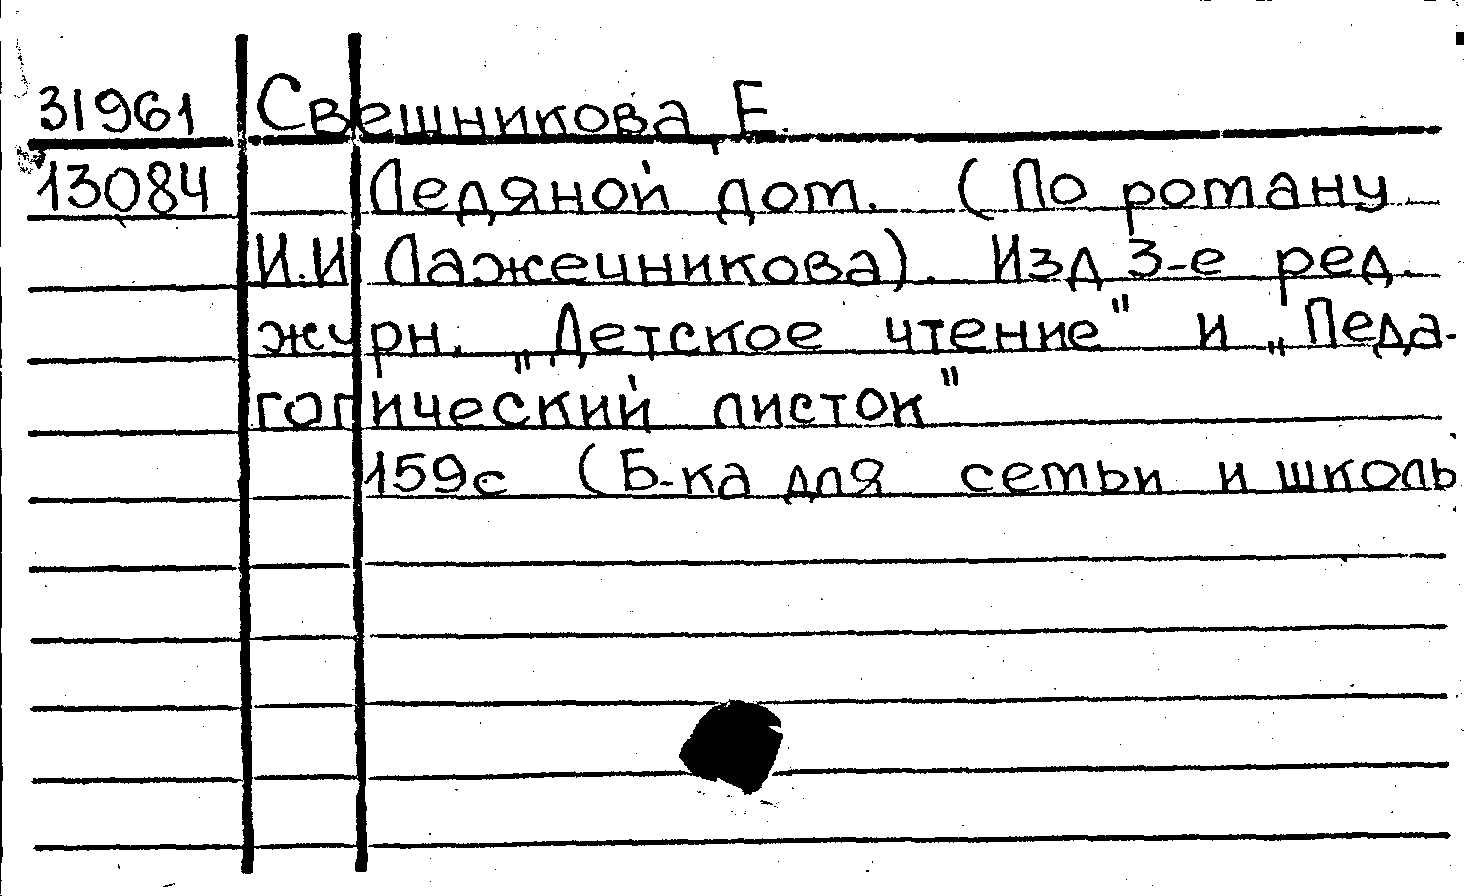 31961 Свешникова, Е.
13084 Ледяной дом. (По роману
И.И Лажечникова). Изд 3-е ред.
журн. „Детское чтение" и „Педа-
гогический листок"
159с (Б-ка для семьи и школь